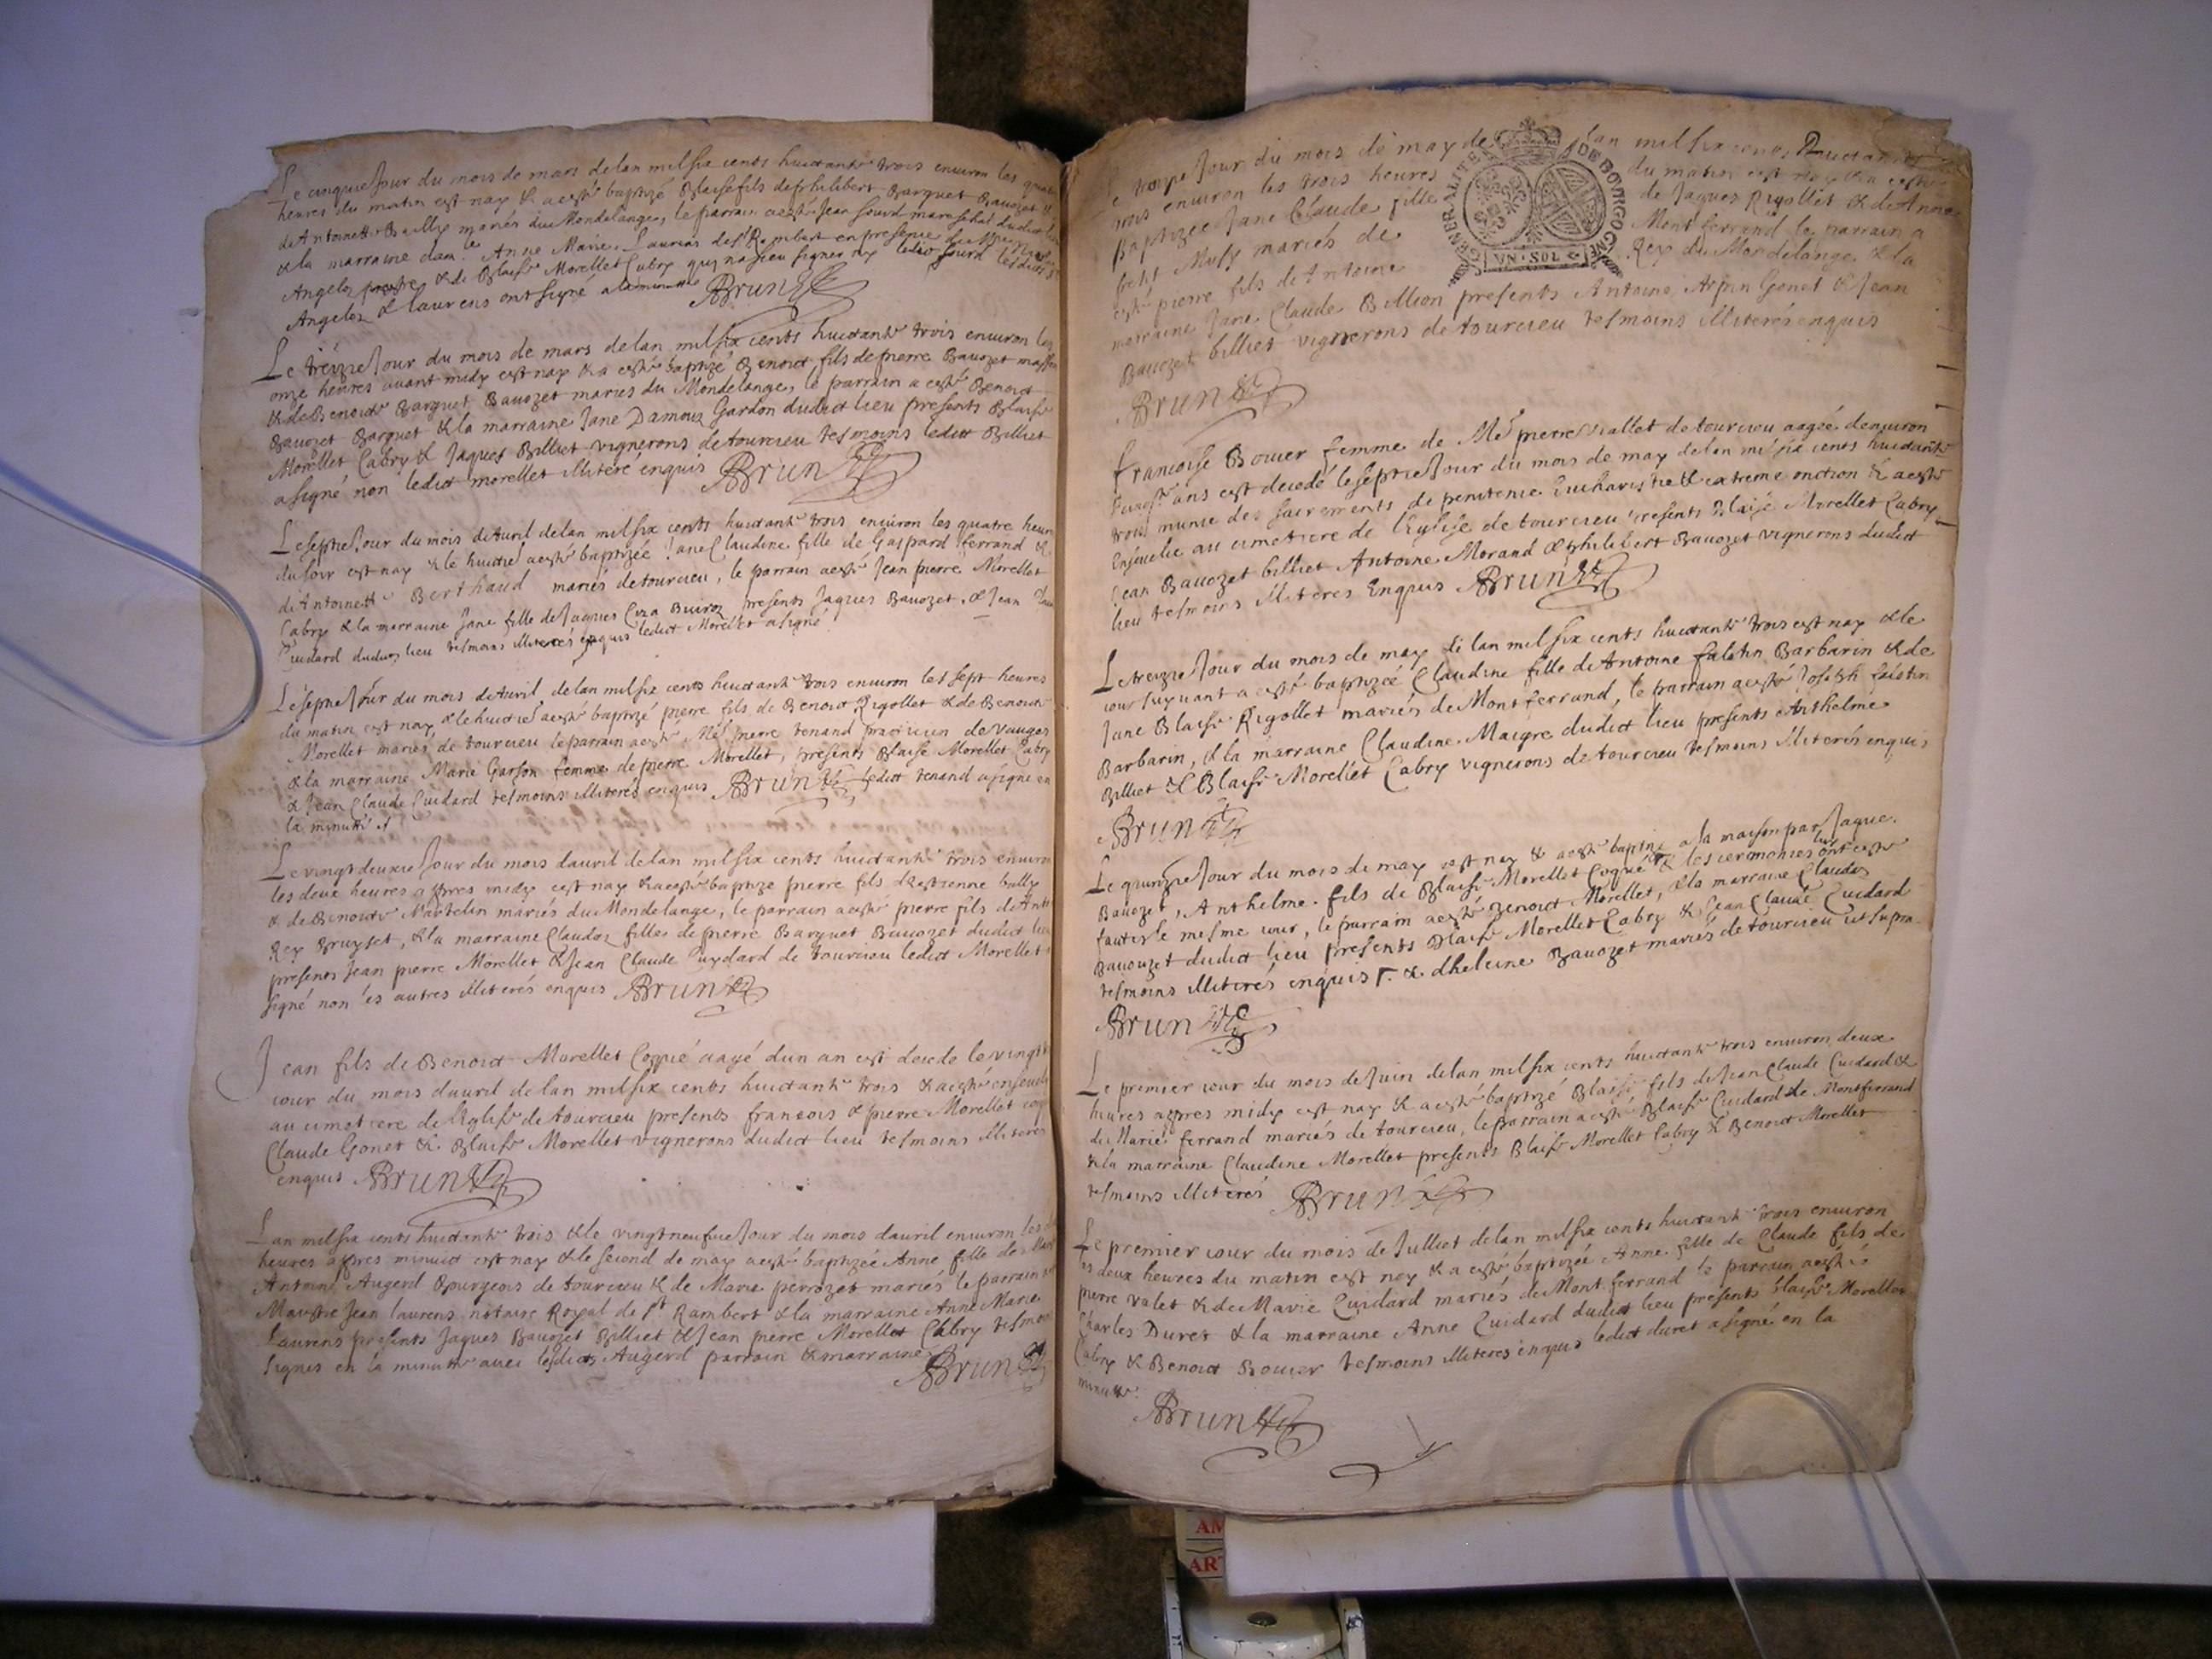 Le cinquie Jour du mois de mars de lan mil six cents huictante trois environ les quatre
heures du matin est nay & a esté baptizé Blaise fils de philibert Barquet Bauozet &
de Antoinette Bailly mariés du Mondelange, le parrain a esté Jean Sourd mareschal dudict
& la marraine dam.le Anne Marie Laurens de st Rambert en presence de
Angeloz prestre & de Blaise Morellet Cabry qui na sceu signer ny ledict Sourd lesdicts
Angeloz & Laurens ont signé a la minutte Brun
Le treizie Jour du mois de mars de lan mil six cents huictante trois environ les
onze heures avant midy est nay & a esté baptizé Benoict fils de pierre Bauozet
& de Benoiste Barquet Bauozet mariés du Mondelange, le parrain a esté Benoict
Bauozet Barquet & la marraine Jane Damouz Gardon dudict lieu presents Blaise
Morellet Cabry & Jaques Billiet vignerons de tourcieu tesmoins ledict Billiet
a signé non ledict morellet illiteré enquis Brun
Le septie Jour du mois d'Avril de lan mil six cents huictante trois environ les quatre heures
du soir est nay & le huictie a esté baptizée Jane Claudine fille de Gaspard ferrand &
d'Antoinette Berthaud mariés de tourcieu, le parrain a esté Jean pierre Morellet
Cabry & la marraine Jane fille de Jaques Buiroz presents Jaques Bauozet & Jean
Cuidard dudict lieu tesmoins illiterés enquis ledict Morellet a signé
Le septie Jour du mois d'Avril de lan mil six cents huictante trois environ les sept heures
du matin est nay & le huictie a esté baptizé pierre fils de Benoict Rigollet & de Benoiste
Morellet mariés de tourcieu le parrain a esté Me pierre tenand praticien de Vauges
& la marraine Marie Garson femme de pierre Morellet, presents Blaise Morellet Cabry
& Jean Claude Cuidard tesmoins illiterés enquis Brun ledict tenand a signé en
la minutte
Le vingt deuxie Jour du mois d'avril de lan mil six cents huictante trois environ
les deux heures appres midy est nay & a esté baptizé pierre fils d'Estienne bally
& de Benoiste Martelin mariés du Mondelange, le parrain a esté pierre fils d'Ant
Rey Bruyset, & la marraine Claudaz fille de pierre Barquet Bauozet dudict lieu
presents Jean pierre Morellet & Jean Claude Cuydard de tourcieu ledict Morellet
signé non les autres illiterés enquis Brun
Jean fils de Benoict Morellet Coqué aagé d'un an est decedé le vingt
jour du mois d'avril de lan mil six cents huictante trois & a esté ensevely
au cimetiere de l'Eglise de tourcieu presents francois & pierre Morellet
Claude Gonet & Blaise Morellet vignerons dudict lieu tesmoins illiteres
enquis Brun
Lan mil six cents huictante trois & le vingt neufvie Jour du mois d'avril environ les
heures appres minuict est nay & le second de may a esté baptizée Anne, fille de
Antoine Augerd Bourgeois de tourcieu & de Marie perrozet mariés le parrain
Maistre Jean laurens notaire Royal de St Rambert & la marraine Anne Marie
Laurens presents Jaques Bauozet Billiet & Jean pierre Morellet Cabry
signes en la minutte avec lesdicts Augerd parrain & marraine Brun
GENERALITE DE BOVRGOGNE
VN·SOL
Le Jour du mois de may de lan mil six cents huictante
trois environ les trois heures du matin est nay & a esté
baptizée Jane Claude fille de Jaques Rigollet & de Anne
mariés de Montferrand le parrain a
esté pierre fils de Antoine Rey du Mondelange & la
marraine Jane Claude Billion presents Antoine Gonet & Jean
Bauozet billiet vignerons de tourcieu tesmoins illiterés enquis
Brun
francoise Bouier femme de Me pierre viallet de tourcieu aagée denviron
ans est decedé le septie Jour du mois de may de lan mil six cents huictante
trois munie des sacrements de penitence Eucharistie & extreme onction & a esté
Ensevelie au cimetiere de l'Eglise de tourcieu presents Blaise Morellet Cabry
Jean Bauozet billiet Antoine Morand & philibert Bauozet vignerons dudict
lieu tesmoins illiteres Enquis Brun
Le treizie Jour du mois de may de lan mil six cents huictante trois est nay & le
jour suyvant a esté baptizée Claudine fille de Antoine falstin Barbarin & de
Jane Blaise Rigollet mariés de Montferrand, le parrain a esté Joseph falstin
Barbarin, & la marraine Claudine Maigre dudict lieu presents Anthelme
Billiet & Blaise Morellet Cabry vignerons de tourcieu tesmoins illiterés enquis
Brun
Le quinzie Jour du mois de may est nay & a esté baptizé a la maison par Jaque
Bauozet, Anthelme fils de Blaise Morellet Coqué & les ceremonies luy ont esté
faictes le mesme jour, le parrain a esté Benoict Morellet, & la marraine Claudaz
Bauouzet dudict lieu presents Blaise Morellet Cabry & Jean Claude Cuidard
tesmoins illiterés enquis & d'heleine Bauozet mariés de tourcieu ut supra
Brun
Le premier jour du mois de Juin de lan mil six cents huictante trois environ deux
heures appres midy est nay & a esté baptizé Blaise fils de Jean Claude Cuidard &
de Marie ferrand mariés de tourcieu, le parrain a esté Blaise Cuidard de Montferrand
& la marraine Claudine Morellet presents Blaise Morellet Cabry & Benoict Morellet
tesmoins illiterés Brun
Le premier jour du mois de Julliet de lan mil six cents huictante trois environ
les deux heures du matin est nay & a esté baptizée Anne fille de Claude fils de
pierre Valet & de Marie Cuidard mariés de Montferrand le parrain a esté
Charles Duret & la marraine Anne Cuidard dudict lieu presents Blaise Morellet
Cabry & Benoict Bouier tesmoins illiteres enquis ledict duret a signé en la
minutte
Brun